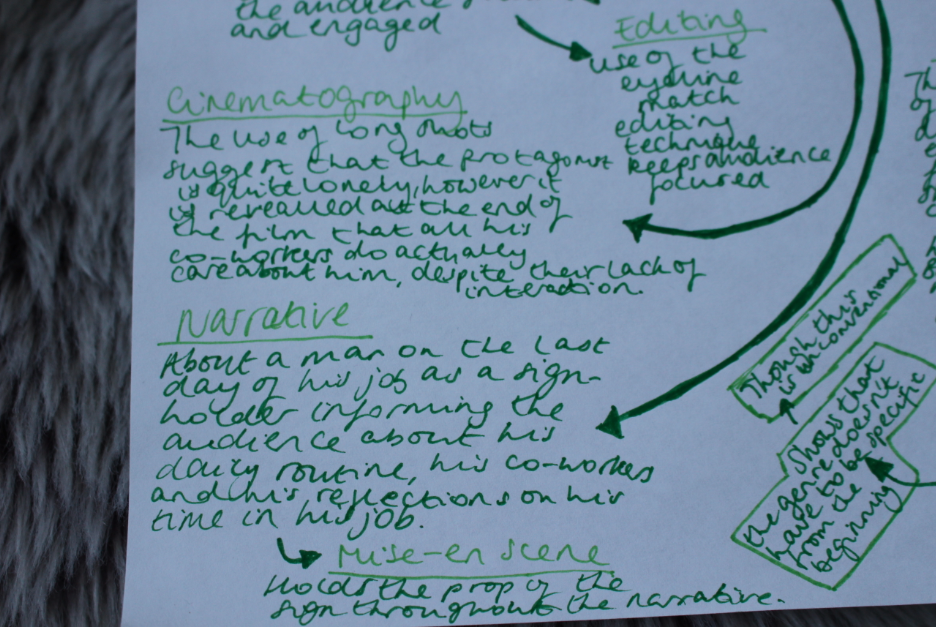 the audience
and engaged
Editing
use of the
eyeline
match
editing
technique
keeps audience
focused
Cinematography
The use of long shots
suggest that the protagonist
is quite lonely, however it
is revealed at the end of
the film that all his
co-workers do actually
care about him, despite their lack of
interaction.
Narrative
About a man on the last
day of his job as a sign-
holder informing the
audience about his
daily routine, his co-workers
and his reflections on his
time in his job.
Mise-en scene
Holds the prop of the
sign throughout the narrative.
Though this
is unconventional
Shows that
the genre doesn't
have to be specific
from the
beginning